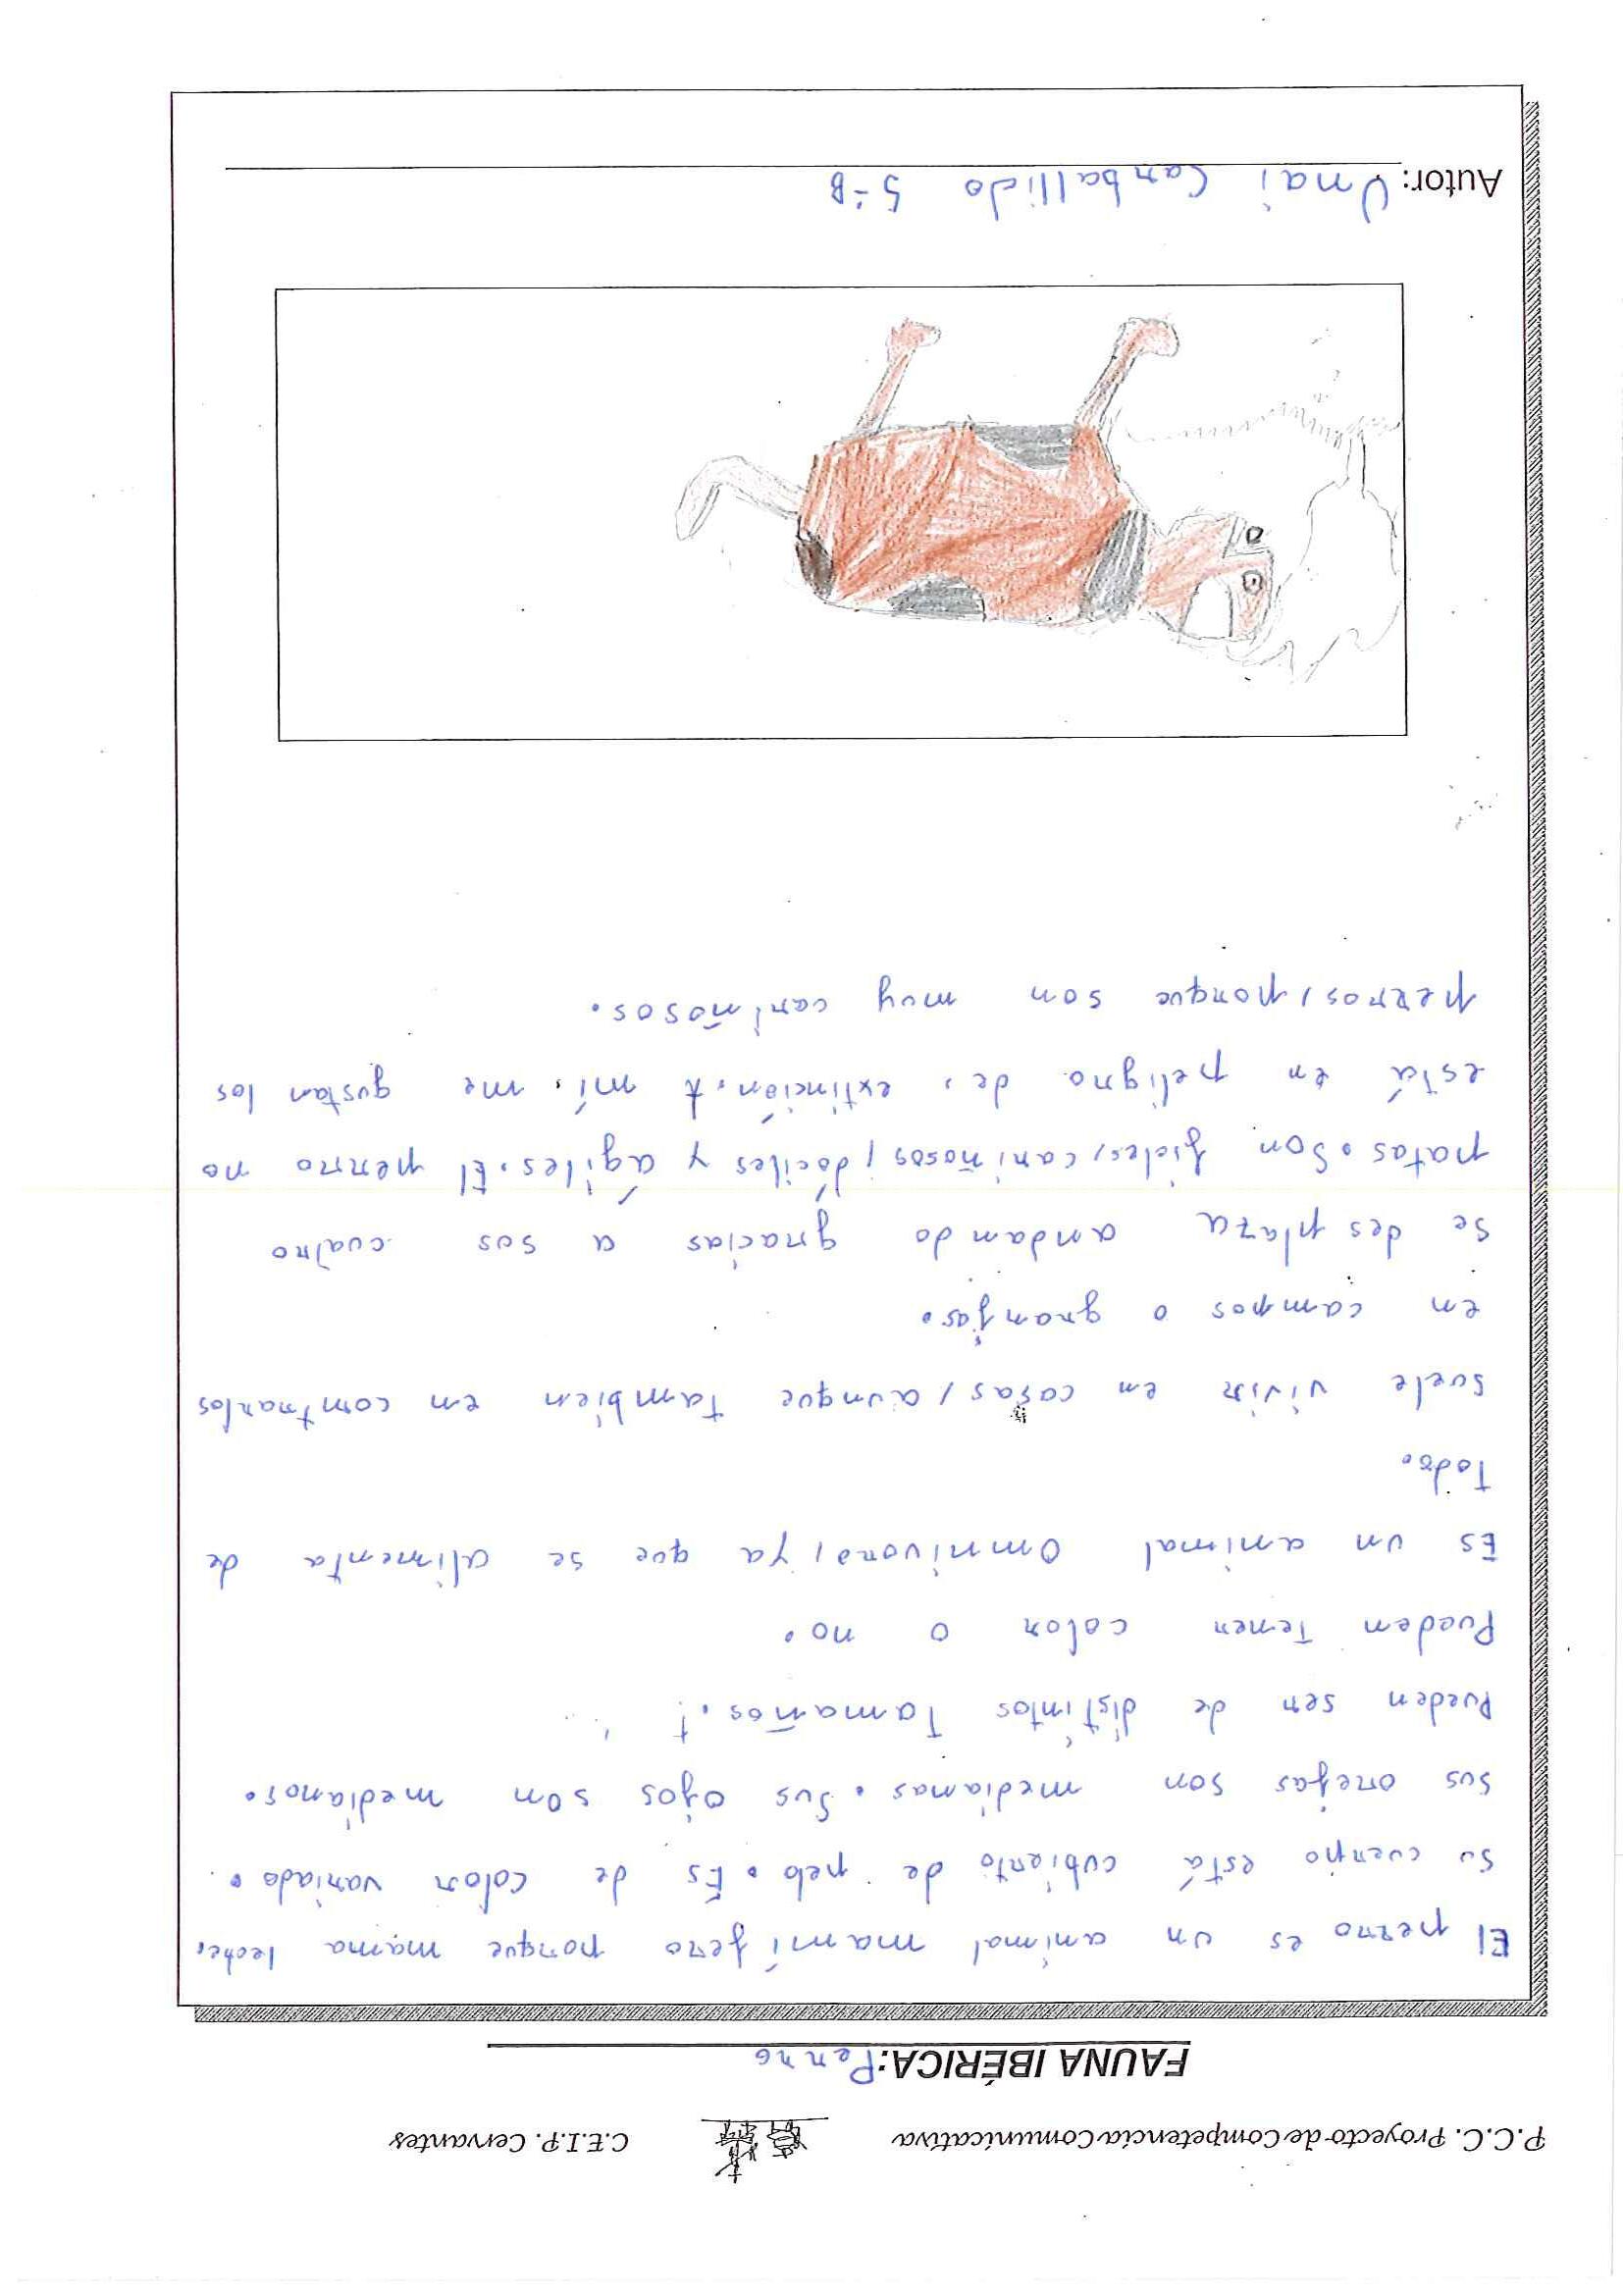 P.C.C. Proyecto de Competencia Comunicativa C.E.I.P. Cervantes
FAUNA IBÉRICA: Perro
El perro es un animal mamífero porque mama leche.
Su cuerpo está cubierto de pelo. Es de color variado.
Sus orejas son medianas. Sus ojos son medianos.
Pueden ser de distintos Tamaños.
Pueden Tener color o no.
Es un animal Omnívoro, ya que se alimenta de
Todo.
Suele vivir en casas, aunque Tambien en contrarlos
en campos o granjas.
Se des plaza andando gracias a sus cuatro
patas. Son fieles, cariñosos, dóciles y ágiles. El perro no
está en peligro de extinción. A mí me gustan los
perros, porque son muy cariñosos.
Autor: Unai Carballido 5-B